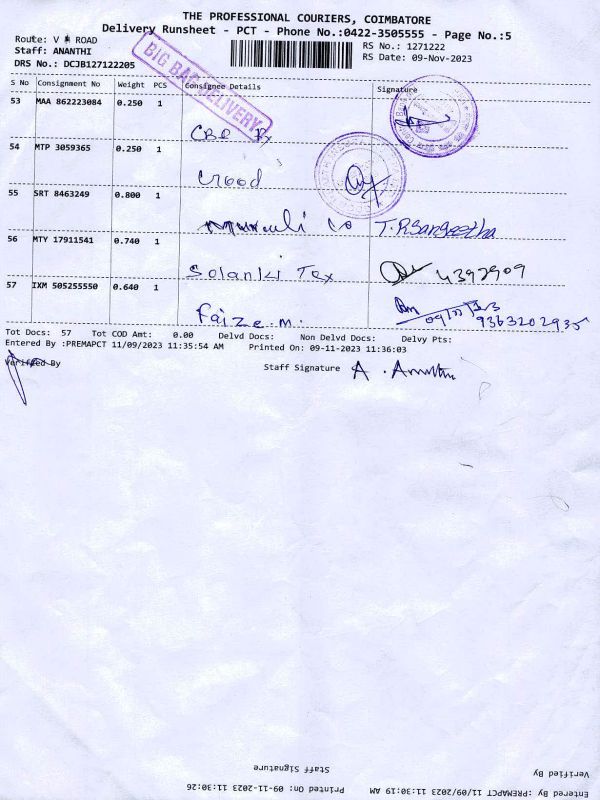 THE PROFESSIONAL COURIERS, COIMBATORE
Delivery Runsheet - PCT - Phone No.:0422-3505555 - Page No.:5
Route: V # ROAD
RS No.: 1271222
Staff: ANANTHI
RS Date: 09-Nov-2023
DRS No.: DCJB127122205
BIG BAG DELIVERY
S No Consignment No Weight PCS Consignee Details Signature
53 MAA 862223084 0.250 1
54 MTP 3059365 0.250 1
Crood
55 SRT 8463249 0.800 1
T.R.Sangeetha
56 MTY 17911541 0.740 1
Solanki Tex 4392909
57 IXM 505255550 0.640 1
Faize m. 9363202935
Tot Docs: 57 Tot COD Amt: 0.00 Delvd Docs: Non Delvd Docs: Delvy Pts:
Entered By :PREMAPCT 11/09/2023 11:35:54 AM Printed On: 09-11-2023 11:36:03
Verified By
Staff Signature
Staff Signature
Verified By
Printed On: 09-11-2023 11:30:26
Entered By :PREMAPCT 11/09/2023 11:30:19 AM